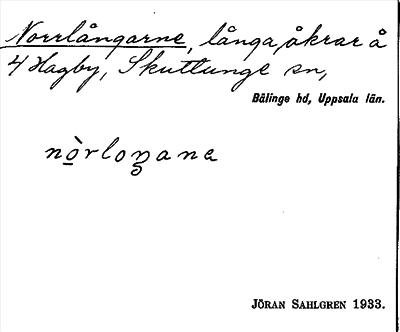 Norrlångarne, långa, åkrar å
4 Hagby, Skuttunge sn,
Bälinge hd, Uppsala län.
nòrloŋana
JÖRAN SAHLGREN 1933.